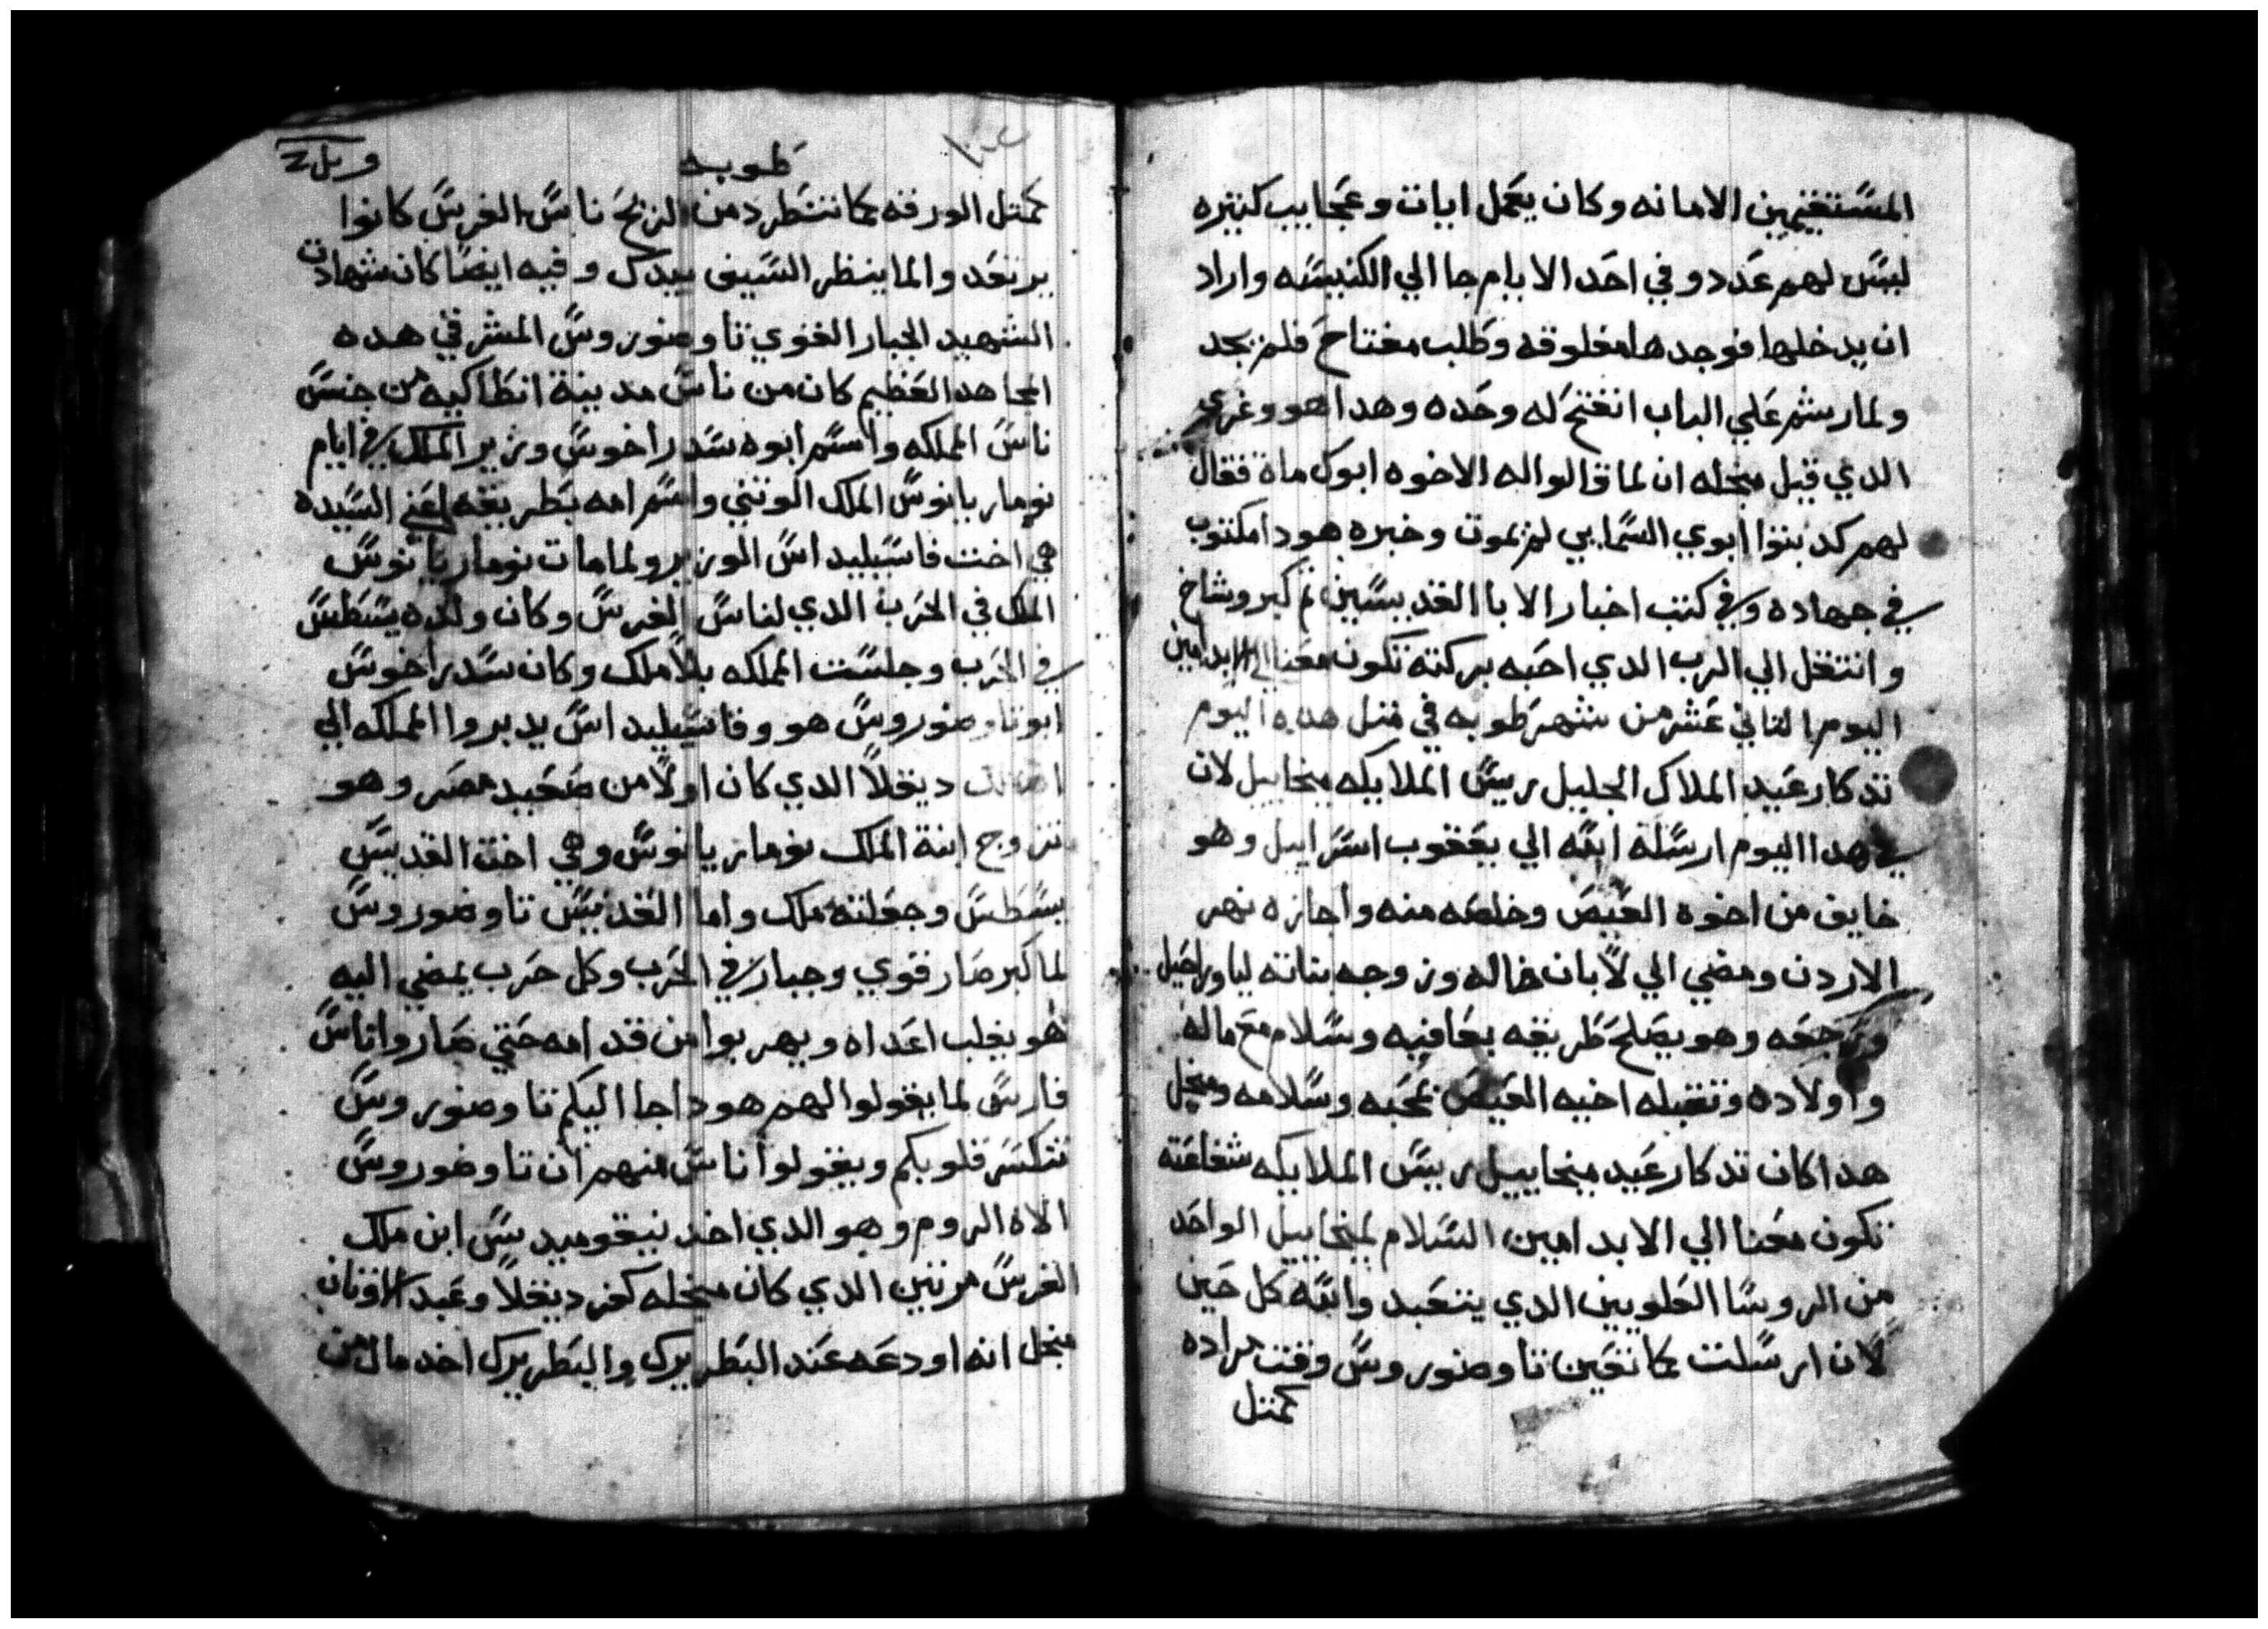 المستقيمين الامانه وكان يعمل ايات وعجايب كتيره
ليس لهم عدد وفي احد الايام جا الي الكنيسه واراد
ان يدخلها فوجدها مغلوقه وطلب مفتاح فلم يجد
ولما رشم علي الباب انفتح له وحده وهدا هو وغري
الدي قيل منجله ان لما قالوا له الاخوه ابوك ماة فقال
لهم كدبتوا ابوي السمايي لم يموت وخبره هودا مكتوب
في جهاده وفي كتب اخبار الابا القديسين تم كبر وشاخ
وانتقل الي الرب الدي احبه بركته تكون معنا الي الابد امين
اليوم التاني عشر من شهر طوبه في متل هده اليوم
تدكار عيد الملاك الجليل ريس الملايكه ميخاييل لان
في هدا اليوم ارسلة الله الي يعقوب اسراييل وهو
خايف من اخوه العيص وخلصه منه واجازه نهر
الاردن ومضي الي لابان خاله وزوجه بناته ليا وراحيل
ورجعه وهو يصلح طريقه بعافيه وسلام مع ماله
واولاده وتقبله اخيه العيص بمحبه وسلامه ومنجل
هدا كان تدكار عيد ميخاييل رييس الملايكه شفاعته
تكون معنا الي الابد امين السلام لميخاييل الواحد
من الروسا العلويين الدي يتعبد والله كل حين
لان ارسلت كما تقين تاوضوروس وقت مراده
كمتل
طوبه
كمتل الورقه كما تنطرد من الزنح ناس الفرس كانوا
يرتعد والما ينظر السيف بيدك وفيه ايضا كان شهادت
الشهيد الجبار القوي تاوضوروس المشرقي هده
المجاهد العظيم كان من ناس مدينة انطاكيه من جنس
ناس المملكه واسم ابوه سدراخوس وزير الملك في ايام
نوماريانوس الملك الوتني واسم امه بطريقه اعني السيده
هي اخت فاسيليداس الوزير ولما مات نوماريانوس
الملك في الحرب الدي لناس الفرس وكان ولده يسطس
في الحرب وجلست المملكه بلا ملك وكان سدراخوس
ابو تاوضوروس هو وفاسيليداس يدبروا المملكه الي
دنقلا الدي كان اولا من صعيد مصر وهو
تزوج ابنة الملك نوماريانوس وهي اخت القديس
يسطس وجعلته ملك واما القديس تاوضوروس
لما كبر صار قوي وجبار في الحرب وكل حرب يمضي اليه
هو يغلب اعداه ويهربوا من قدامه حتي صاروا ناس
فارس لما يقولوا لهم هودا جا اليكم تاوضوروس
تنكسر قلوبكم ويقولوا ناس منهم ان تاوضوروس
الاه الروم وهو الدي اخد نيقوميديس ابن ملك
الفرس مرتين الدي كان منجله كفر ديقلا وعبد الاوتان
منجل انه اودعه عند البطريرك والبطريرك اخد مال من